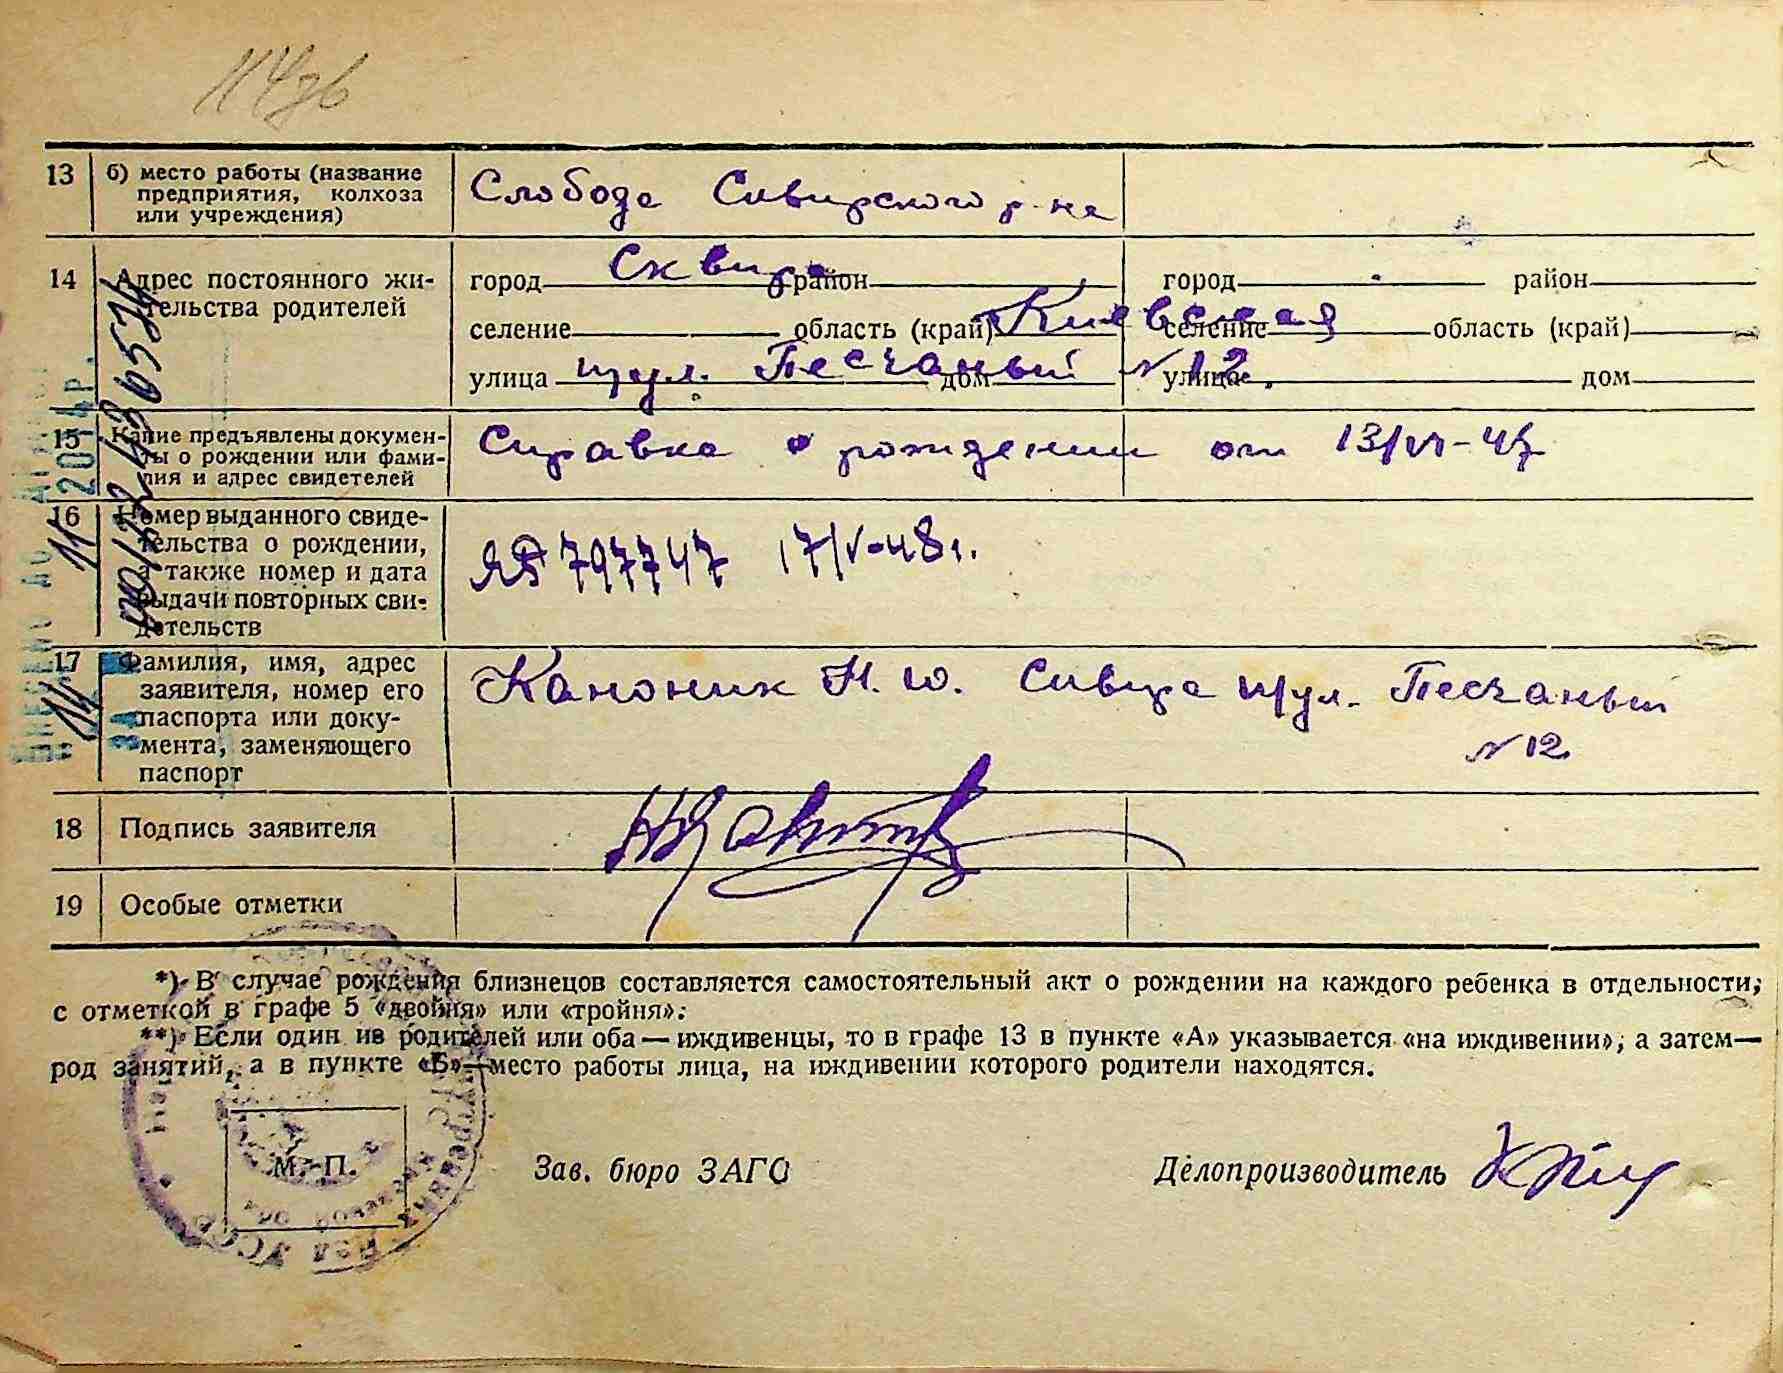 13 б) место работы (название
предприятия, колхоза
или учреждения)
Слобода Сквирского р-на
14 Адрес постоянного жи-
тельства родителей
город Сквира район
город район
селение область (край) Киевская
селение область (край)
улица пул. Песчаный дом № 12
улица дом
15 Какие предъявлены докумен-
ты о рождении или фами-
лия и адрес свидетелей
Справка о рождении от 13/VI-47
16 Номер выданного свиде-
тельства о рождении,
а также номер и дата
выдачи повторных сви-
детельств
ЯБ 797747 17/V-48 г.
17 Фамилия, имя, адрес
заявителя, номер его
паспорта или доку-
мента, заменяющего
паспорт
Каноник Н. Ю. Сквира пул. Песчаный
№ 12
18 Подпись заявителя
19 Особые отметки
*) В случае рождения близнецов составляется самостоятельный акт о рождении на каждого ребенка в отдельности,
с отметкой в графе 5 «двойня» или «тройня».
**) Если один из родителей или оба — иждивенцы, то в графе 13 в пункте «А» указывается «на иждивении», а затем—
род занятий, а в пункте «Б»—место работы лица, на иждивении которого родители находятся.
М. П.
Зав. бюро ЗАГС
Делопроизводитель